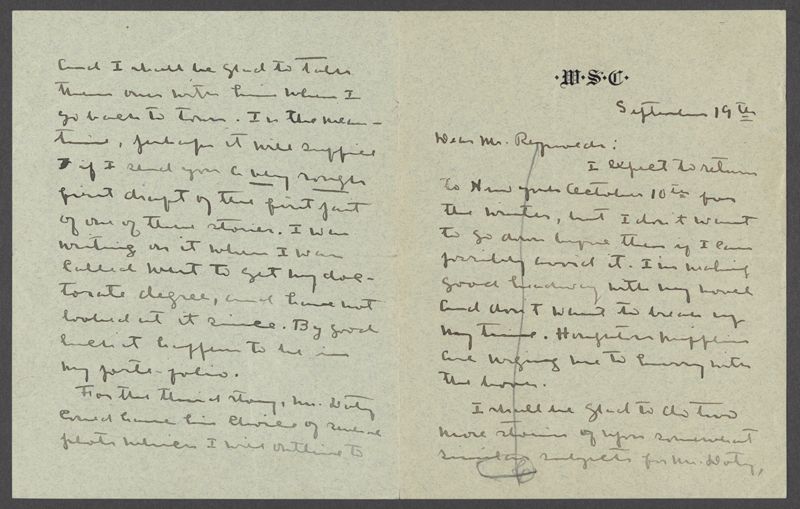 ·W·S·C·
September 19th
Dear Mr. Reynolds:
I expect to return
to New York October 10th for
the winter, but I don't want
to go down before then if I can
possibly avoid it. I'm making
good headway with my novel
and don't want to break up
my time. Houghton Mifflin
are urging me to hurry with
the
I shall be glad to do two
more stories upon somewhat
similar subjects for Mr. Doty,
and I shall be glad to talk
them over with him when I
go back to town. In the mean-
time, perhaps it will suffice
if I send you a very rough
first draft of the first part
of one of these stories. I was
writing on it when I was
called West to get my doc-
torate degree, and have not
looked at it since. By good
luck it happens to be in
my porte-folio.
For the third story, Mr. Doty
could have his choice of several
plots which I will outline to